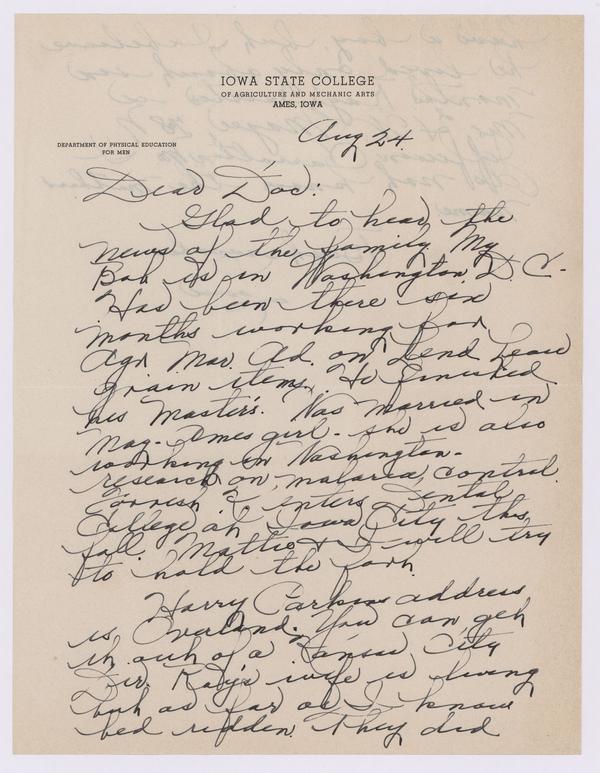 IOWA STATE COLLEGE
OF AGRICULTURE AND MECHANIC ARTS
AMES, IOWA
DEPARTMENT OF PHYSICAL EDUCATION
FOR MEN
Aug 24
Dear Doc:
Glad to hear the
news of the family. My
Bob is in Washington D.C.
Has been there six
months working for
Agr Mar. Ad. on Lend Lease
grain items. He finished
his Master's. Was married in
May - Ames girl - she is also
working in Washington -
research on malaria control.
enters Dental
College at Iowa City this
fall. Mattie & I will try
to hold the fort.
Harry Carlson's address
is Overland. You can get
it out of a Kansas City
Dir. Ray's wife is living
but as far as I know
bed ridden. They did